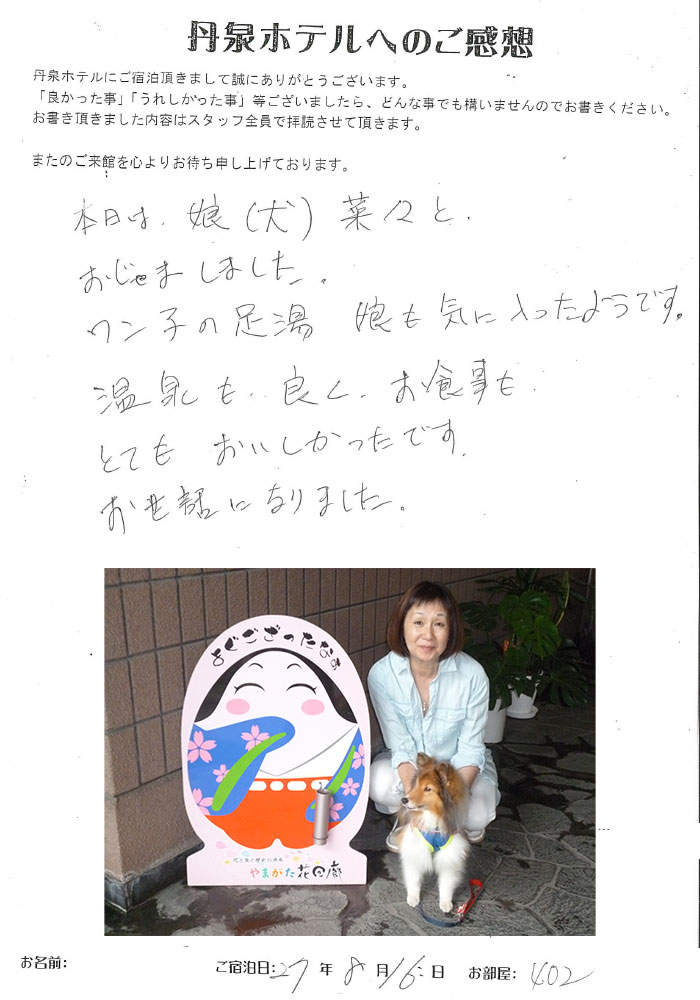 丹泉ホテルへのご感想
丹泉ホテルにご宿泊頂きまして誠にありがとうございます。
「良かった事」「うれしかった事」等ございましたら、どんな事でも構いませんのでお書きください。
お書き頂きました内容はスタッフ全員で拝読させて頂きます。
またのご来館を心よりお待ち申し上げております。
本日は、娘(犬)菜々と、
おじゃましました。
ワン子の足湯 娘も気に入ったようです。
温泉も、良く、お食事も
とても おいしかったです。
お世話になりました。
よぐござったなぁ
花と食と歴史の湯巡
やまがた花回廊
お名前:
ご宿泊日: 27 年 8 月 16 日 お部屋: 402